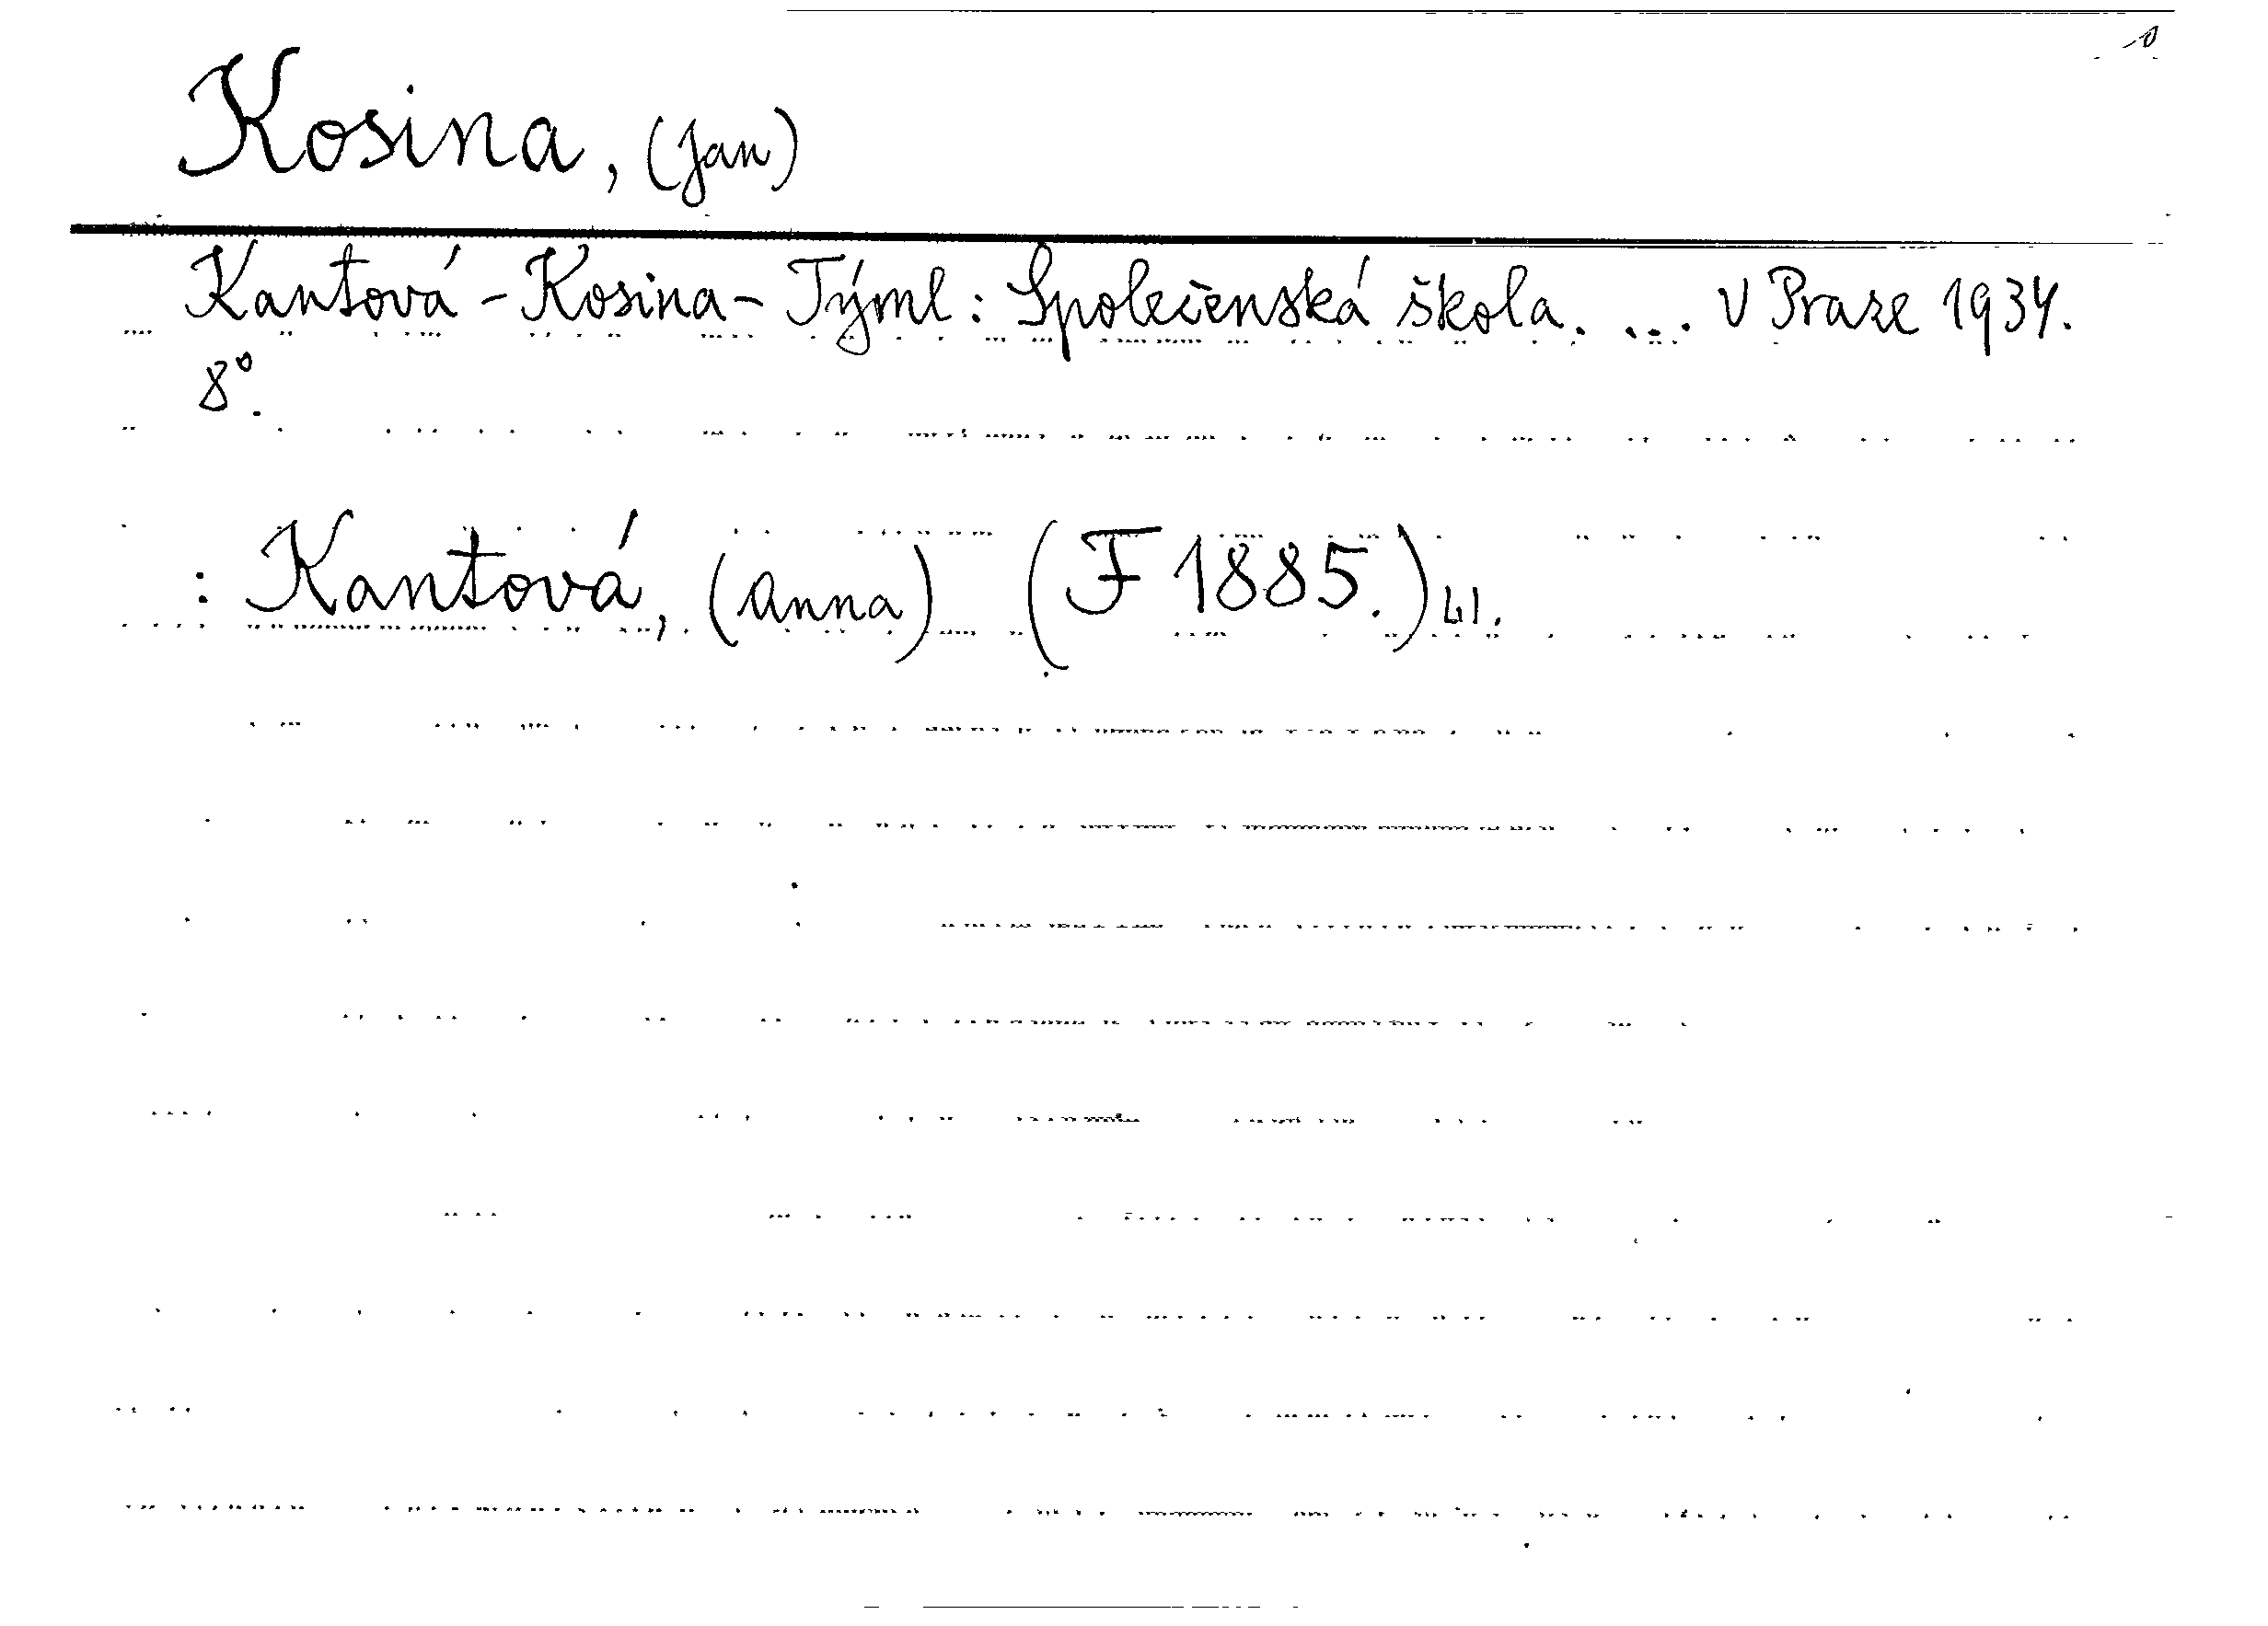 Kosina, (Jan)
Kantová - Kosina - Týml: Společenská škola. ... V Praze 1934.
8°.
: Kantová, (Anna) (F 1885.) 41.